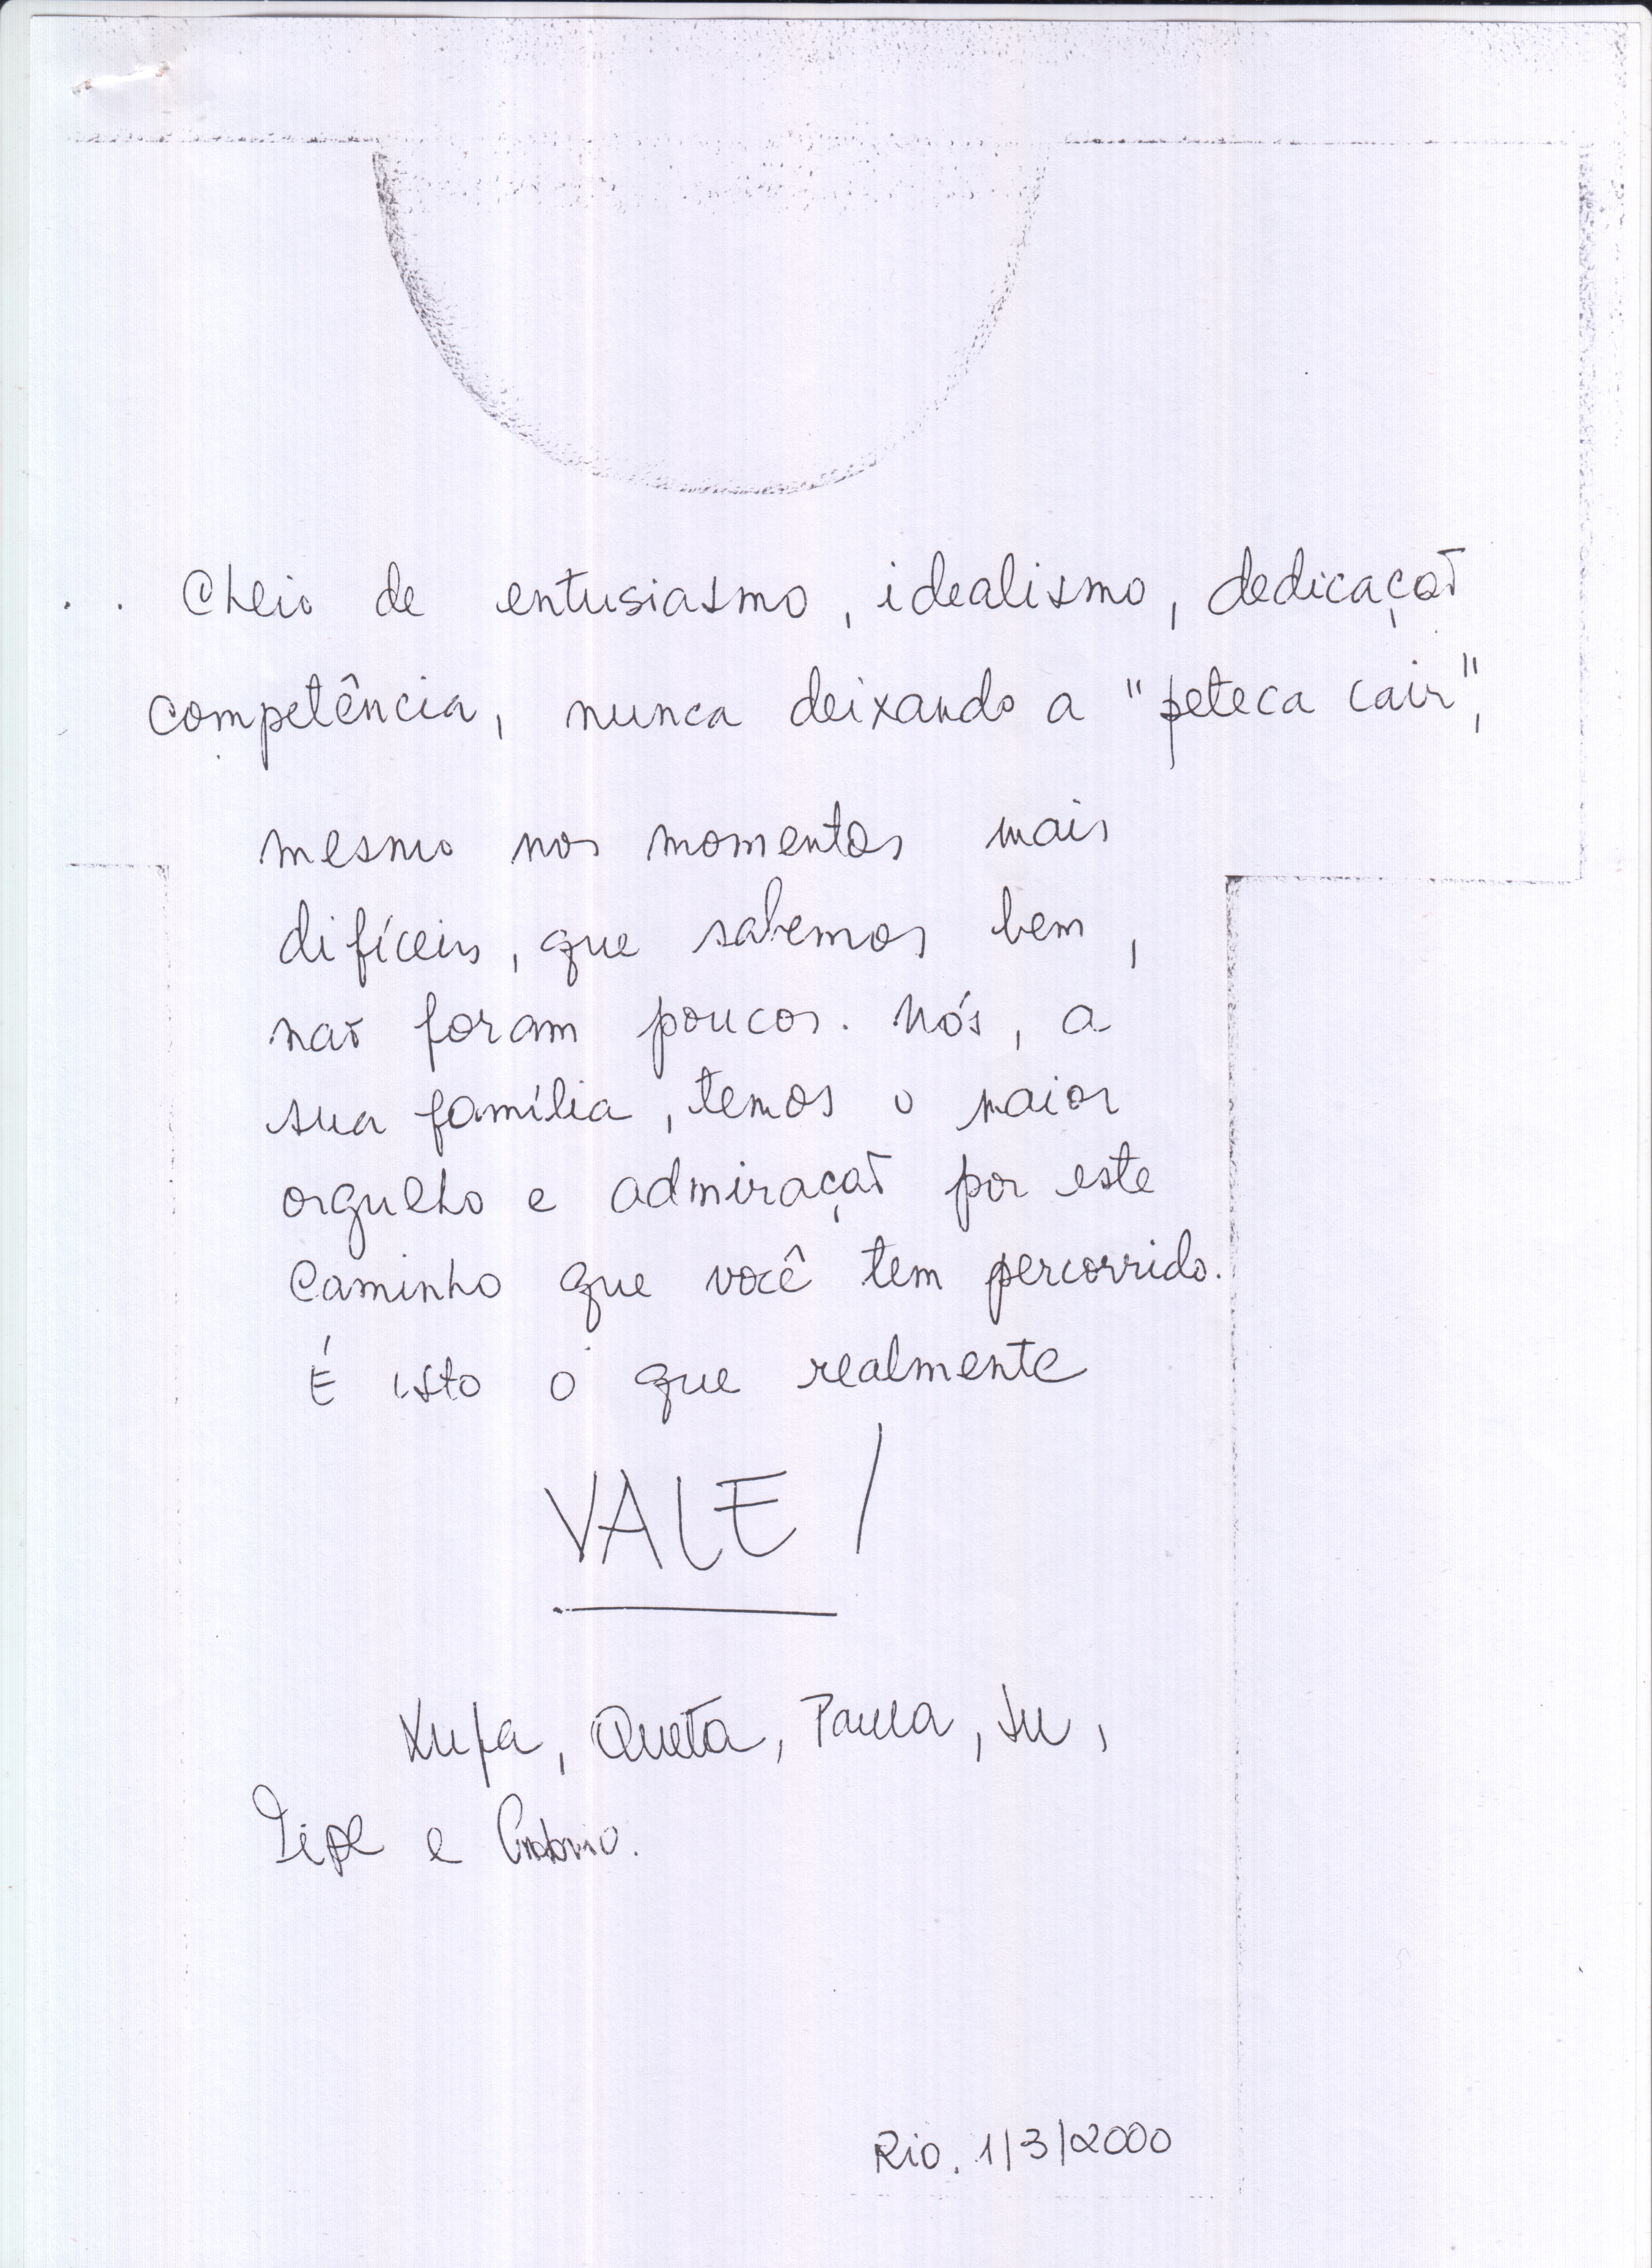 Cheio de entusiasmo, idealismo, dedicação
competência, nunca deixando a "peteca cair",
mesmo nos momentos mais
difíceis, que sabemos bem,
não foram poucos. Nós, a
sua família, temos o maior
orgulho e admiração por este
caminho que você tem percorrido.
É isto o que realmente
VALE!
Xufa, Queta, Paula, Ju,
e
Rio. 1/3/2000